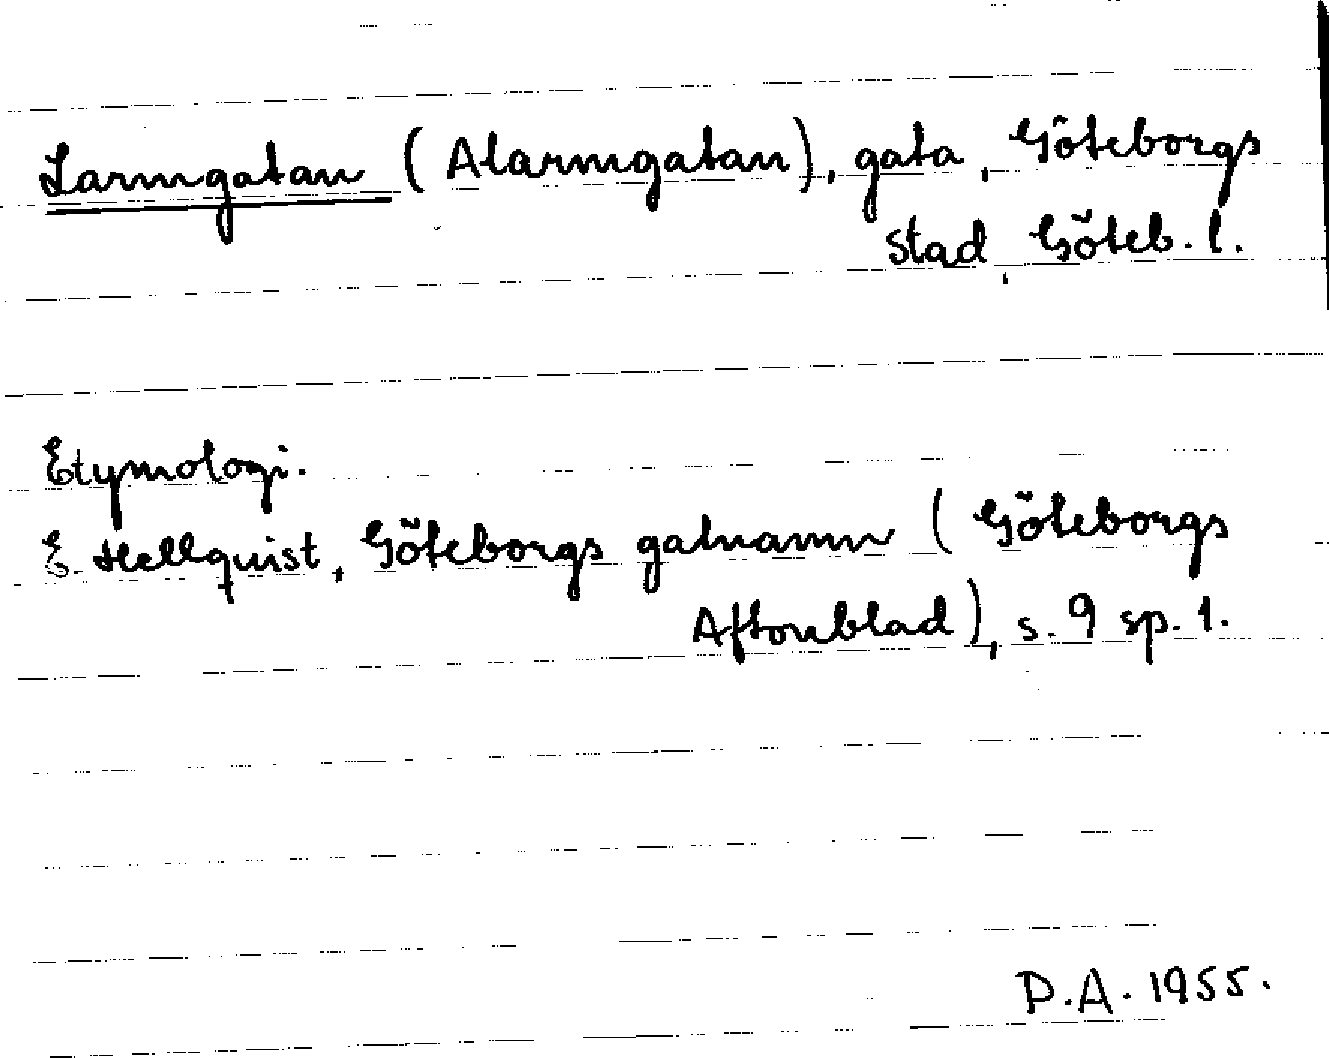 Larmgatan (Alarmgatan), gata, Göteborgs
stad, Göteb. l.
Etymologi.
E. Hellquist, Göteborgs gatnamn (Göteborgs
Aftonblad), s. 9 sp. 1.
D.A. 1955.